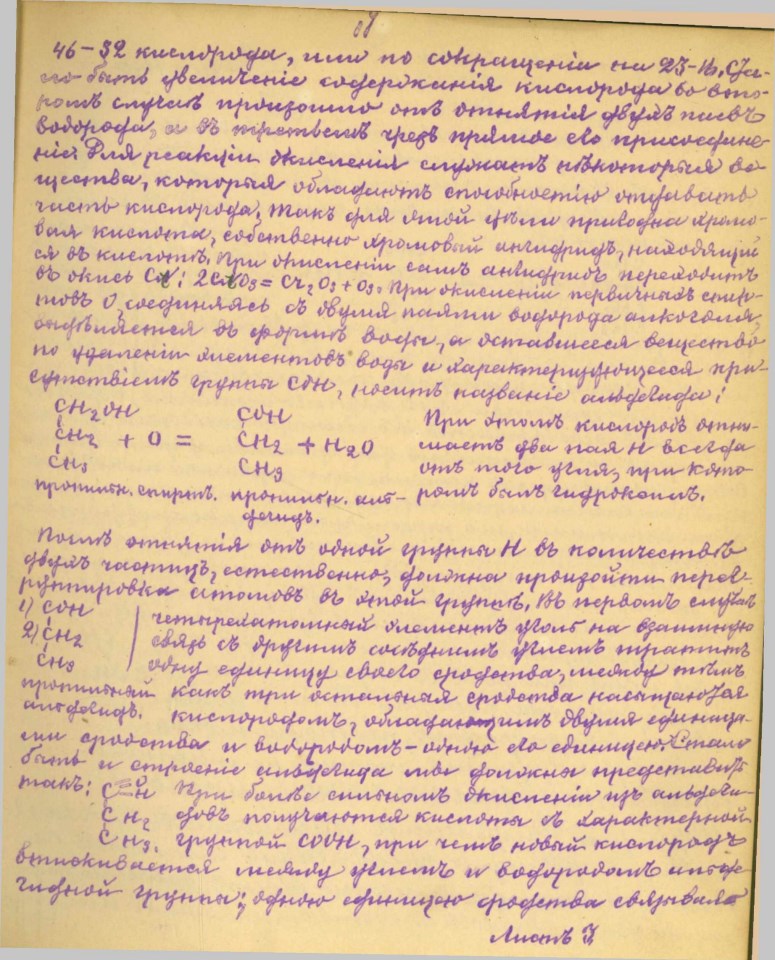 46–32 кислорода, или по сокращеніи на 2: 23–16. Ста-
ло быть увеличеніе содержанія кислорода во вто-
ромъ случаѣ произошло отъ отнятія двухъ паевъ
водорода, а въ третьемъ чрезъ прямое его присоедине-
ніе. Для реакціи окисленія служатъ нѣкоторыя ве-
щества, которыя обладаютъ способностію отдавать
часть кислорода. Такъ для этой цѣли пригодна хромо-
вая кислота, собственно хромовый ангидридъ, находящій
ся въ кислотѣ. При окисленіи самъ ангидридъ переходитъ
въ окись Cr: 2CrO3 = Cr2O3 + O3. При окисленіи первичныхъ спир-
товъ O, соединяясь съ двумя паями водорода алкоголя,
выдѣляется въ формѣ воды, а оставшееся вещество
по удаленіи элементовъ воды и характеризующееся при-
сутствіемъ группы COH, носитъ названіе альдегида:
CH2OH COH При этомъ кислородъ отни-
CH2 + O = CH2 + H2O маетъ два пая H всегда
CH3 CH3 отъ того угля, при кото-
пропильн. спиртъ. пропильн. аль- ромъ былъ гидроксилъ.
дегидъ.
Послѣ отнятія отъ одной группы H въ количествѣ
двухъ частицъ, естественно, должна произойти перег-
руппировка атомовъ въ этой группѣ. Въ первомъ случаѣ
1) COH четырехатомный элементъ уголь на взаимную
2) CH2 связь съ другимъ сосѣднимъ углемъ тратитъ
CH3 одну единицу своего сродства, между тѣмъ
пропильный какъ три остальныя сродства насыщаются
альдегидъ. кислородомъ, обладающимъ двумя единица-
ми сродства и водородомъ – одною его единицею. Стало
быть и строеніе альдегида мы должны представить
такъ: C=O H При болѣе сильномъ окисленіи изъ альдеги-
CH2 довъ получаются кислоты съ характерной
CH3. группой COOH, при чемъ новый кислородъ
втискивается между углемъ и водородомъ альде-
гидной группы; одною единицею сродства связывая
Листъ 3